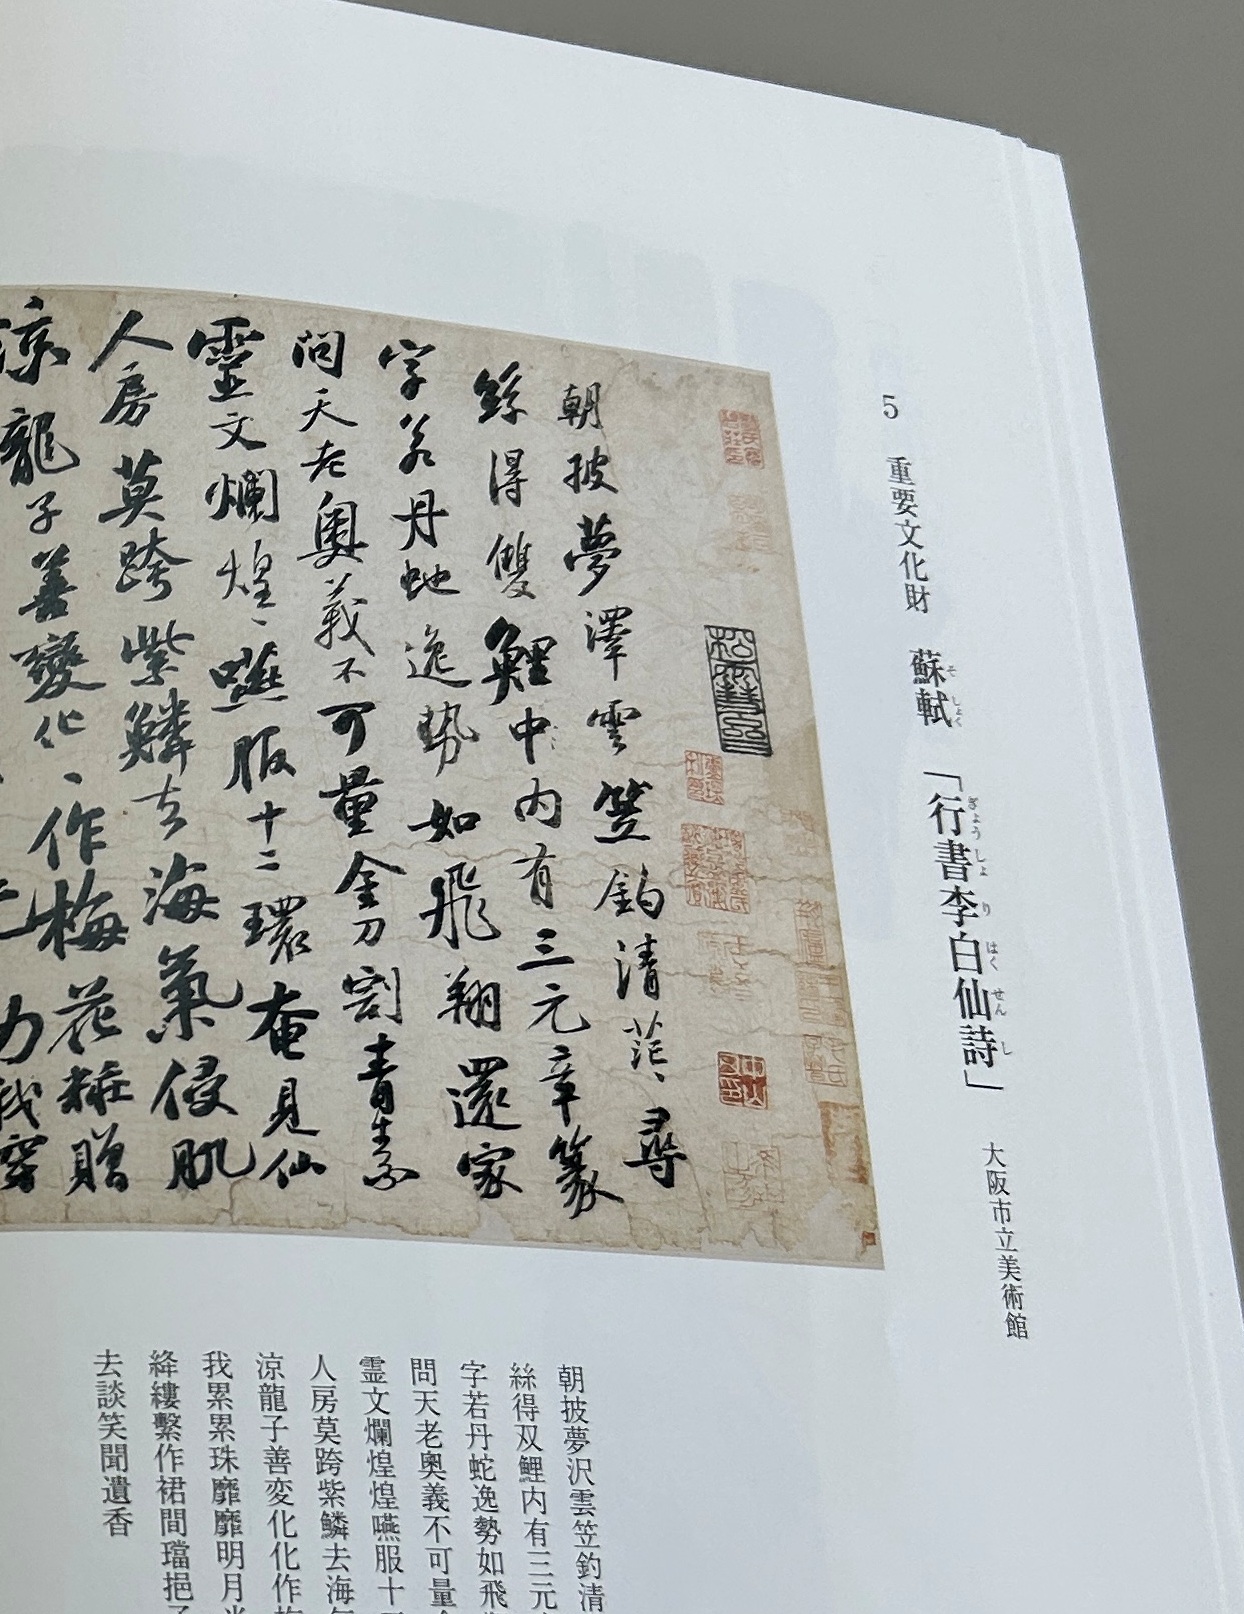 5 重要文化財 蘇軾「行書李白仙詩」 大阪市立美術館
そ しょく
ぎょう しょ り はく せん し
朝披夢澤雲笠釣清茫〻尋
絲得雙鯉中〻内有三元章篆
字若丹虵逸勢如飛翔還家
問天老奥義不可量金刀割青素
靈文爛煌〻嚥服十二環奄見仙
人房莫跨紫鱗去海氣侵肌
涼龍子善變化〻作梅花粧贈
我
朝披夢沢雲笠釣清
絲得双鯉内有三元
字若丹蛇逸勢如飛
問天老奥義不可量
霊文爛煌煌嚥服十
人房莫跨紫鱗去海
涼龍子善変化化作
我累累珠靡靡明月
絳縷繋作裙間璫挹
去談笑聞遺香